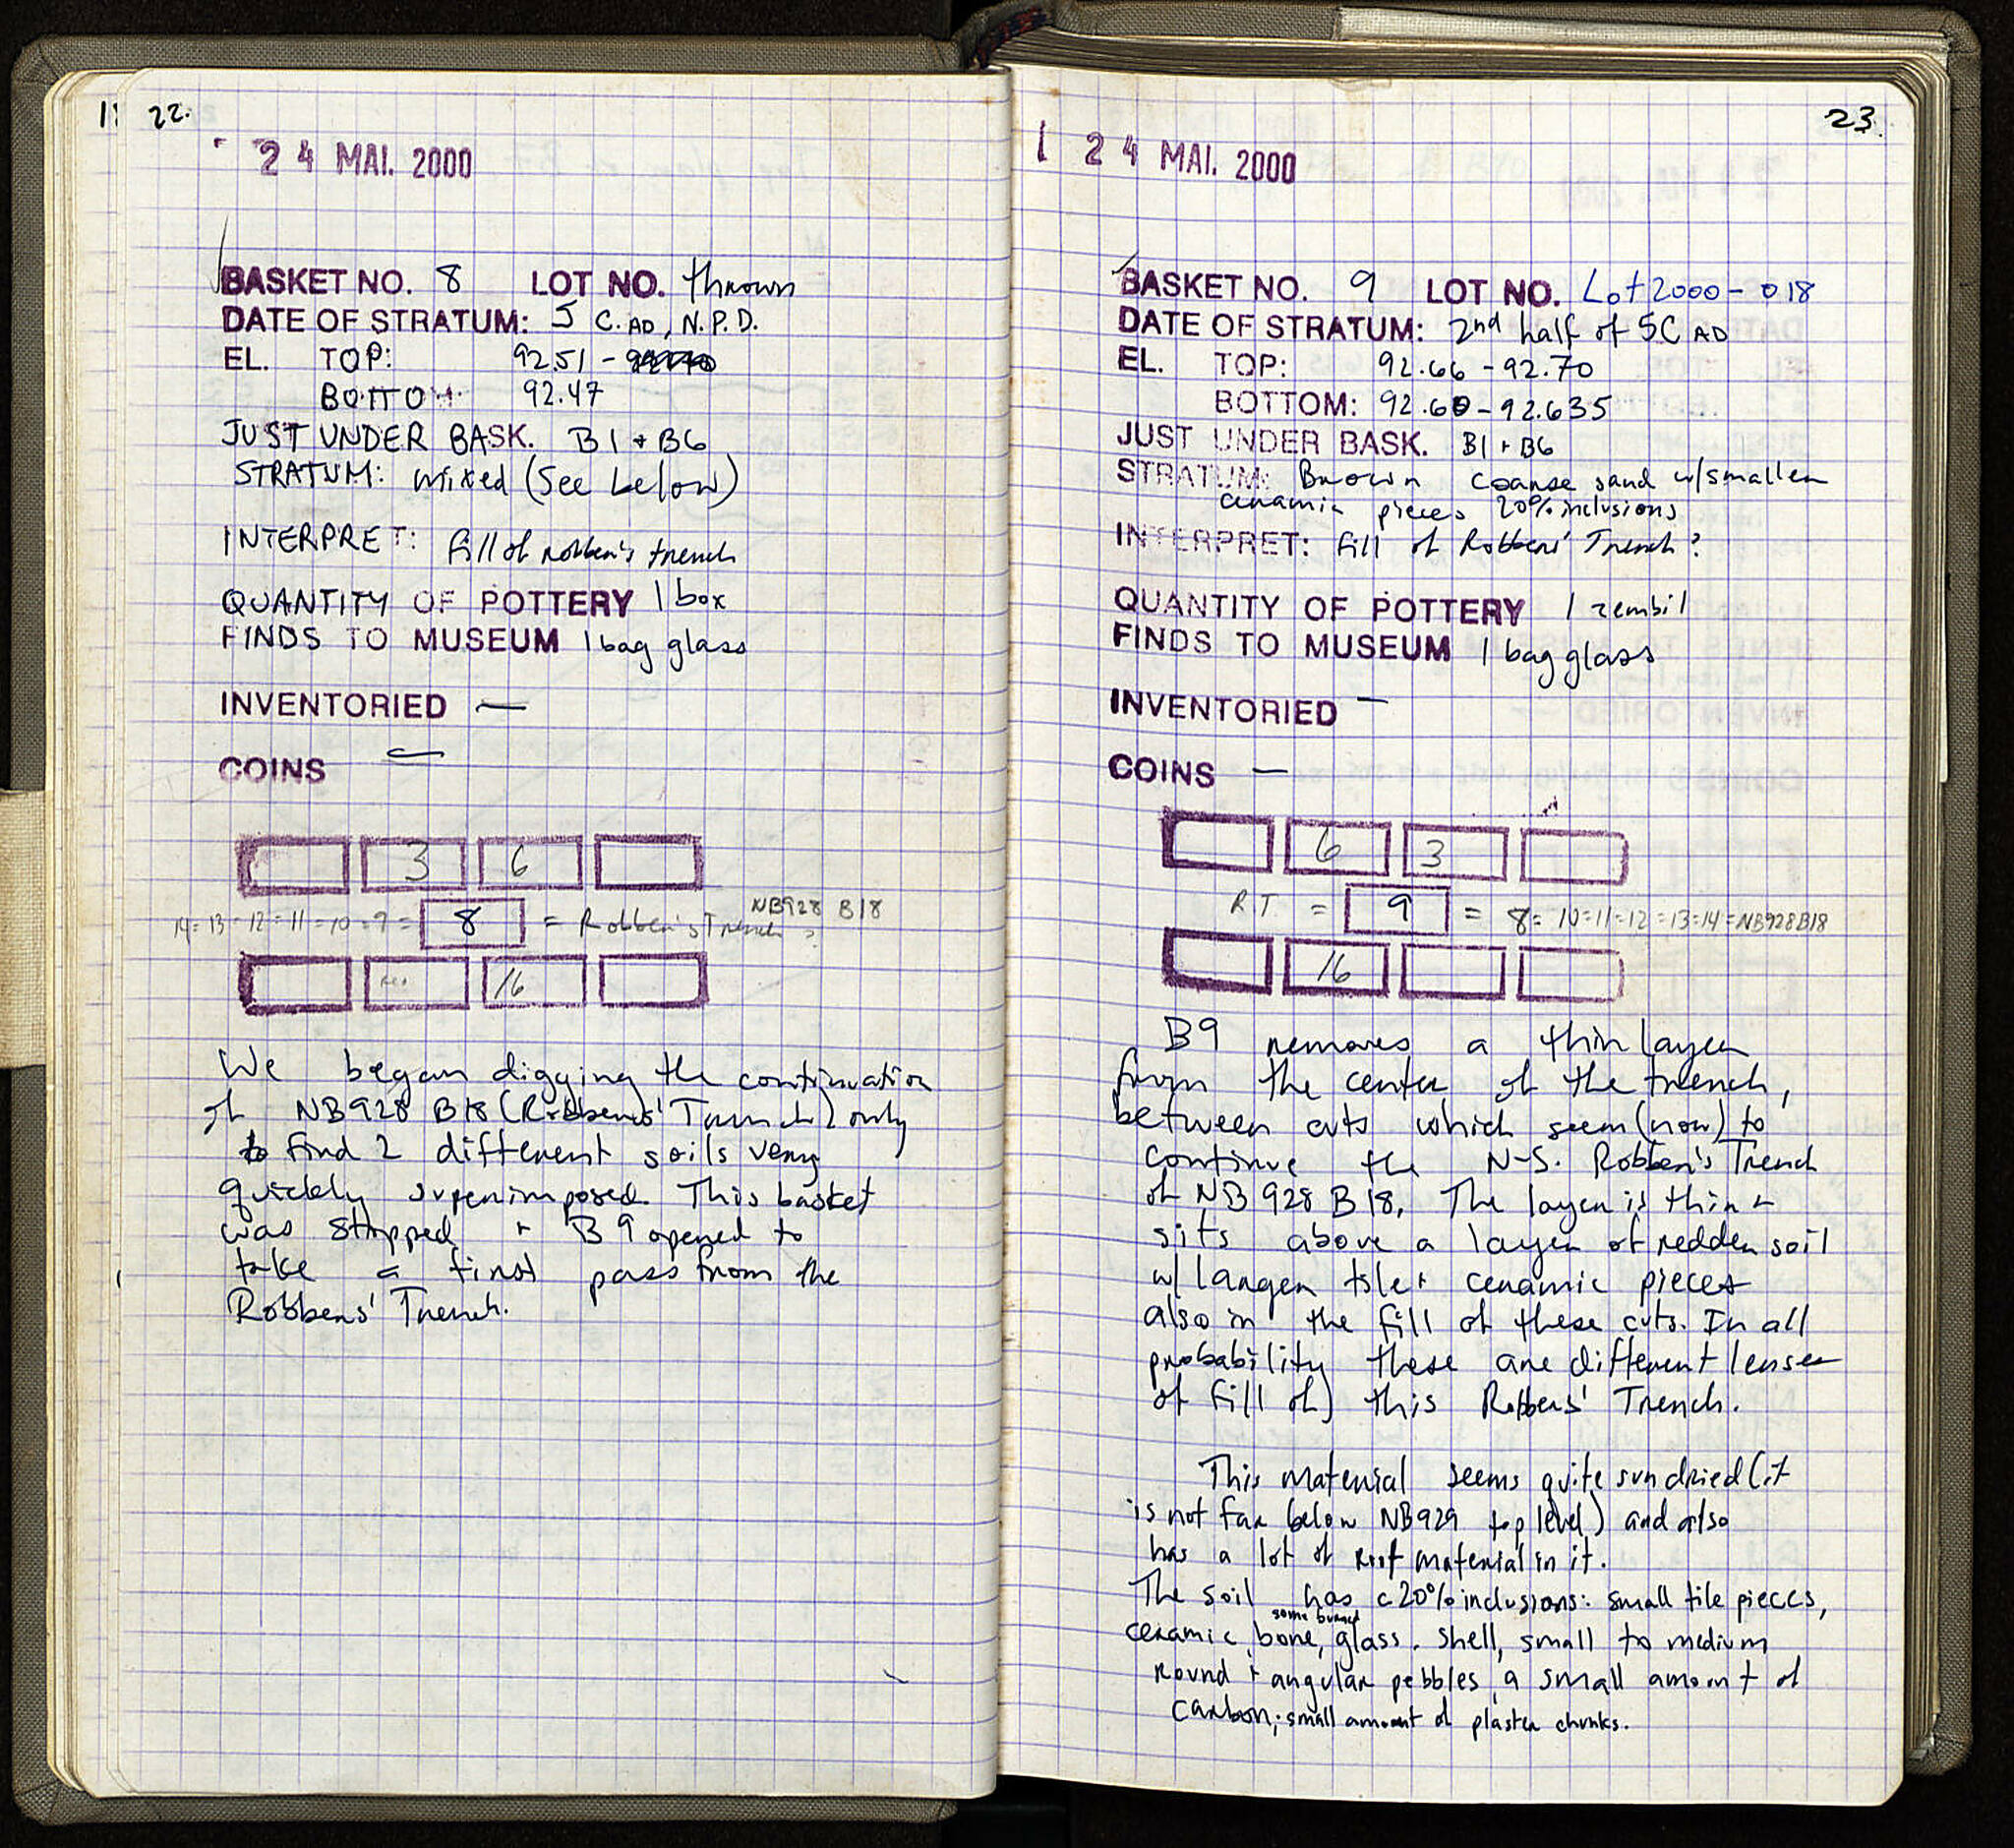 22.
2 4 MAI. 2000
BASKET NO. 8 LOT NO. thrown
DATE OF STRATUM: 5 C. AD, N.P.D.
EL. TOP: 92.51 -
BOTTOM 92.47
JUST UNDER BASK. B1 + B6
STRATUM: mixed (See below)
INTERPRET: fill of robber's trench
QUANTITY OF POTTERY 1 box
FINDS TO MUSEUM 1 bag glass
INVENTORIED —
COINS —
3 6
NB928 B18
14=13=12=11=10=9= 8 = Robber's Trench
16
We began digging the continuation
of NB928 B18 (Robbers' Trench) only
to find 2 different soils very
quickly superimposed. This basket
was stopped + B9 opened to
take a first pass from the
Robbers' Trench.
23.
2 4 MAI. 2000
BASKET NO. 9 LOT NO. Lot 2000-018
DATE OF STRATUM: 2nd half of 5C AD
EL. TOP: 92.66 - 92.70
BOTTOM: 92.60 - 92.635
JUST UNDER BASK. B1 + B6
STRATUM: Brown coarse sand w/smaller
ceramic pieces 20% inclusions
INTERPRET: fill of Robbers' Trench?
QUANTITY OF POTTERY 1 zembil
FINDS TO MUSEUM 1 bag glass
INVENTORIED —
COINS —
6 3
R.T. = 9 = 8=10=11=12=13=14=NB928B18
16
B9 removes a thin layer
from the center of the trench,
between cuts which seem (now) to
continue the N-S. Robber's Trench
of NB 928 B 18. The layer is thin +
sits above a layer of redder soil
w/ larger tile + ceramic pieces
also in the fill of these cuts. In all
probability these are different lenses
of fill of) this Robbers' Trench.
This material seems quite sun dried (it
is not far below NB929 top level) and also
has a lot of root material in it.
The soil has c20% inclusions: small tile pieces,
some burned
ceramic, bone, glass, shell, small to medium
round + angular pebbles, a small amount of
carbon; small amount of plaster chunks.